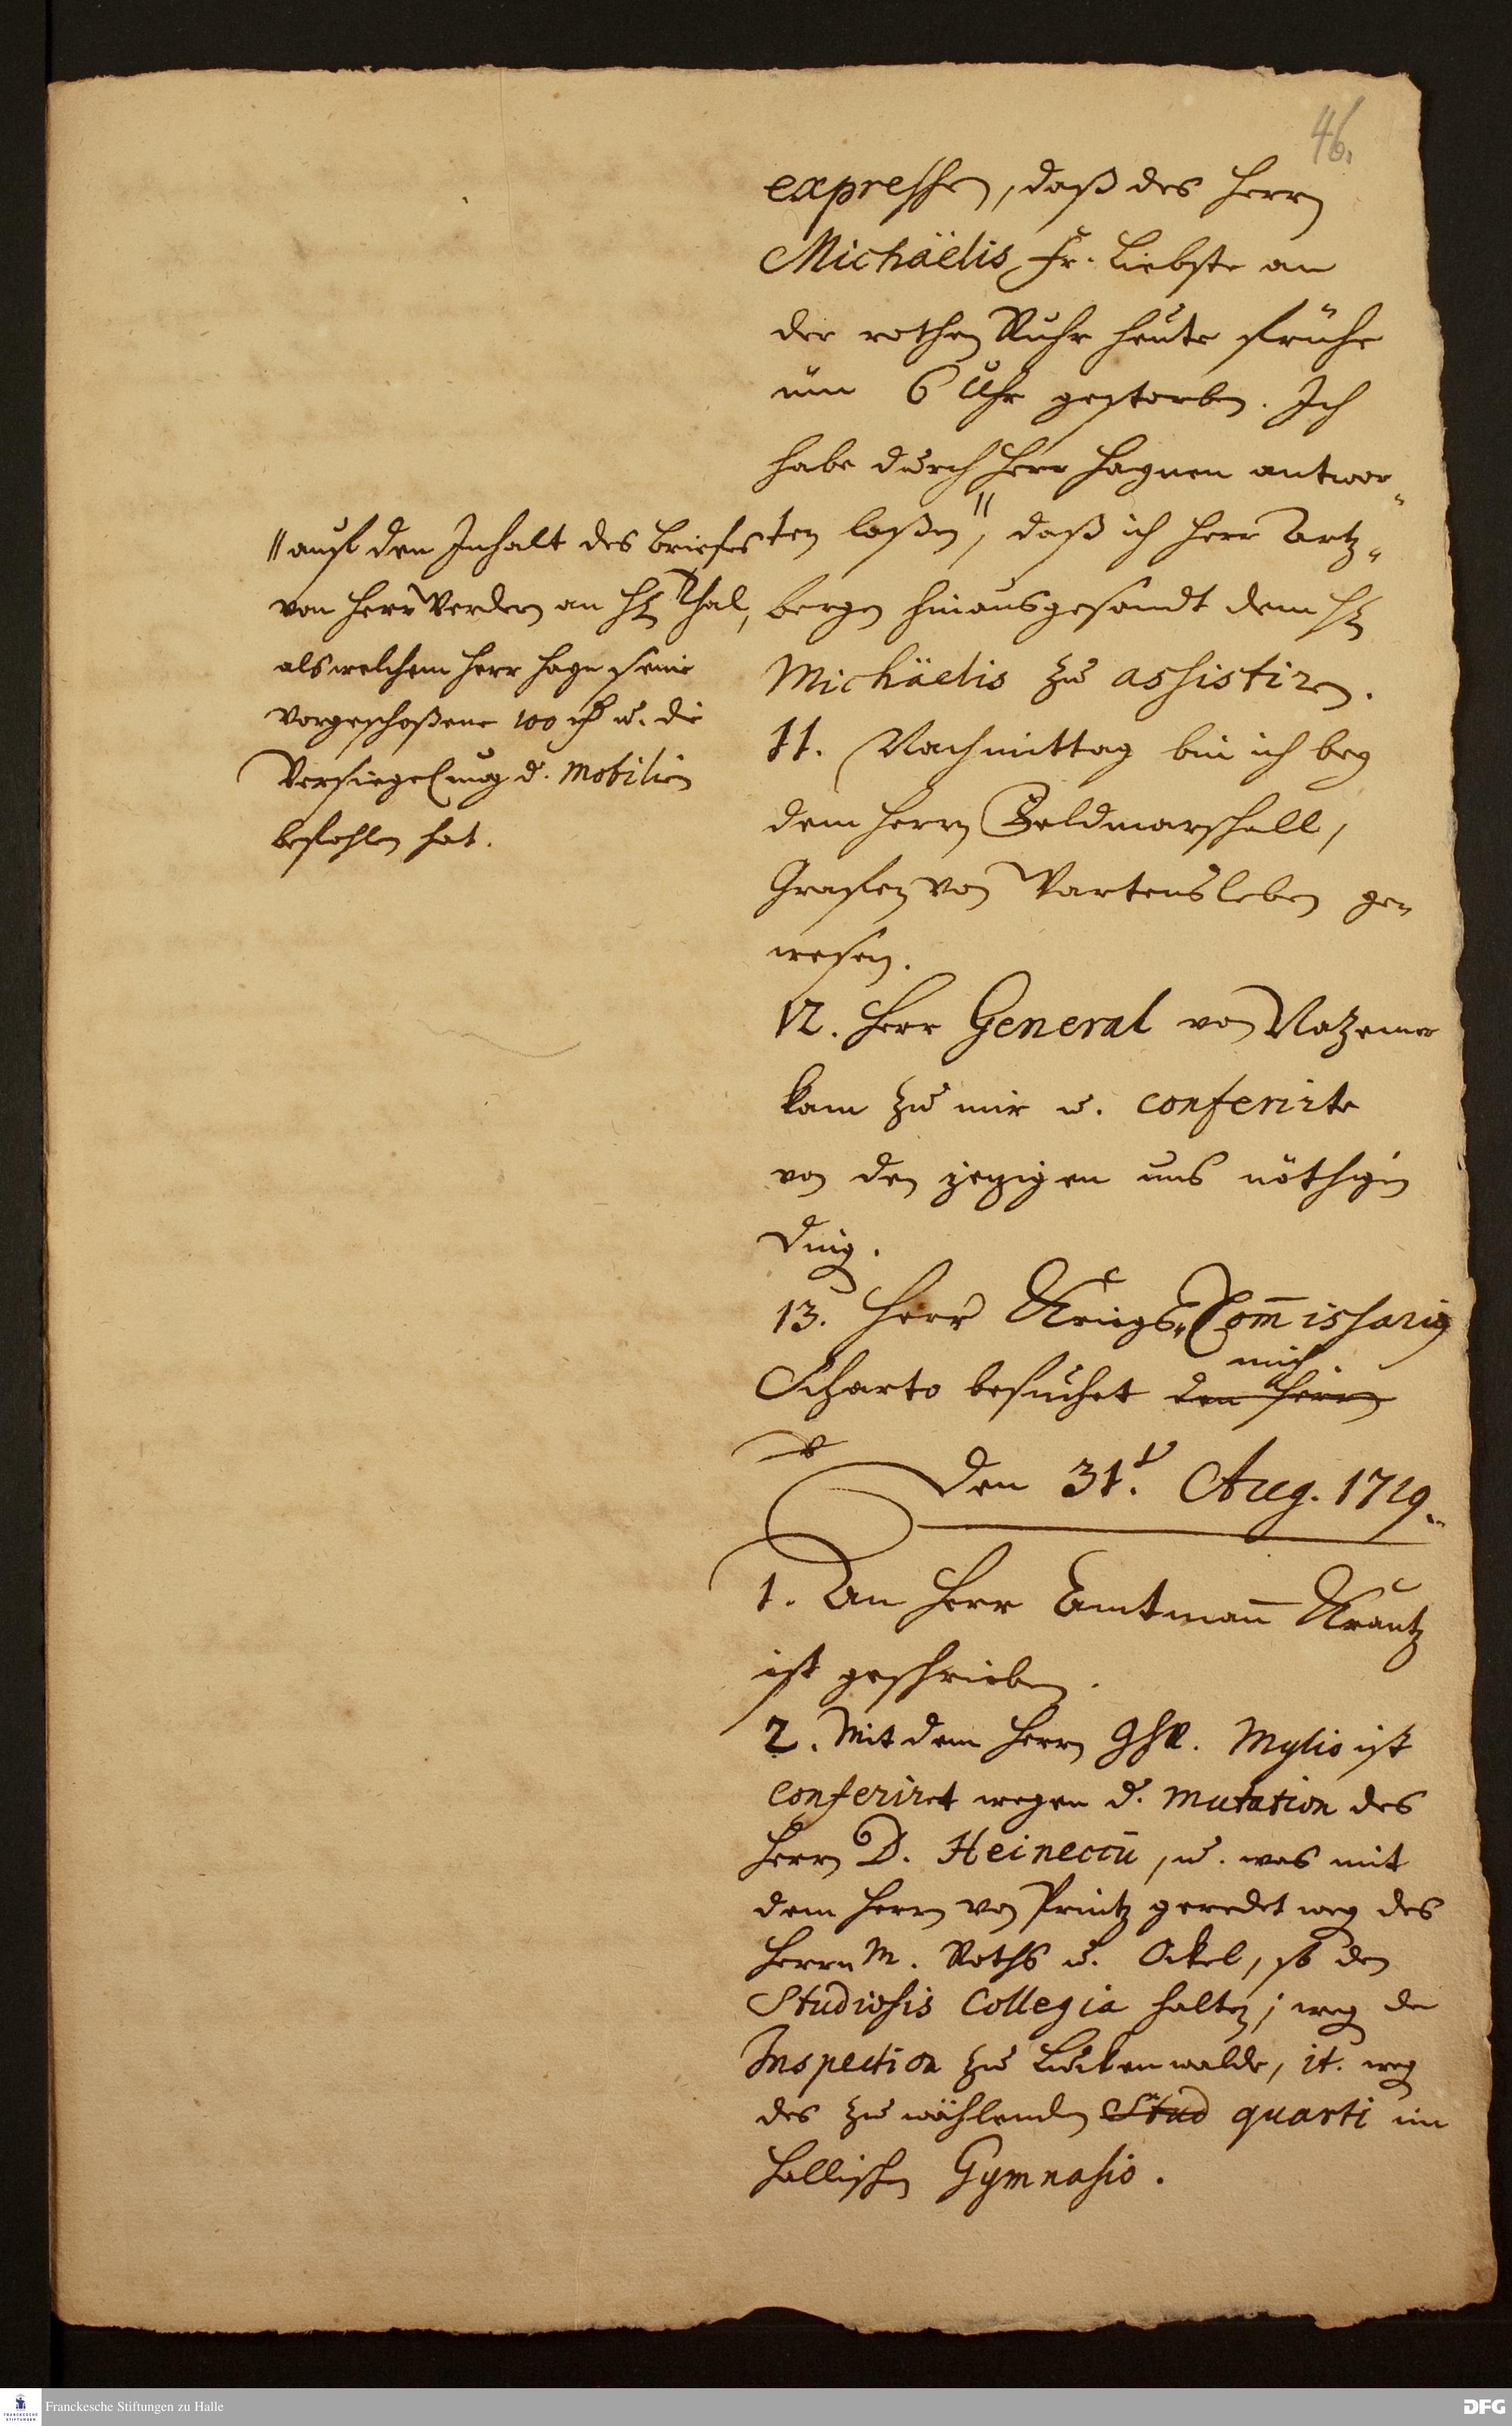 46.
expressen, daß des Herrn
Michäelis Fr. Liebste an
der rothen Ruhr heute frühe
um 6 Uhr gestorben. Ich
habe durch Herr Hagnen antwor-
ten laßen ", daß ich Herr Artz-
bergen hinausgesandt dem H.
Michäelis zu assistiren.
" auf den Inhalt des briefes
von Herr Verden an H. Thal,
als welchem Herr Hagn seine
vorgeschoßene 100 rh u. die
Versiegelung d. Mobilien
befohlen hat.
11. Nachmittag bin ich bey
dem Herrn Feldmarschall,
Grafen von Wartensleben ge-
wesen.
12. Herr General von Nazemer
kam zu mir u. conferirte
von den jezigen uns nöthigen
Ding.
13. Herr Kriegs-Com̄issarius
Scharto besuchet den Herrn mich.
Den 31. Aug. 1719.
1. An Herr Amtman̄ Krautz
ist geschrieben.
2. Mit dem Herrn GhR. Mylio ist
conferiret wegen d. Mutation des
Herrn D. Heineccii, u. was mit
dem Herrn von Printz geredet weg des
Herrn M. Roths u. Ockel, so den
Studiosis Collegia halten; weg der
Inspection zu Luckenwalde, it. weg
des zu wählenden Stud quarti im
Hallischen Gymnasio.
Franckesche Stiftungen zu Halle
FRANCKESCHE STIFTUNGEN
DFG